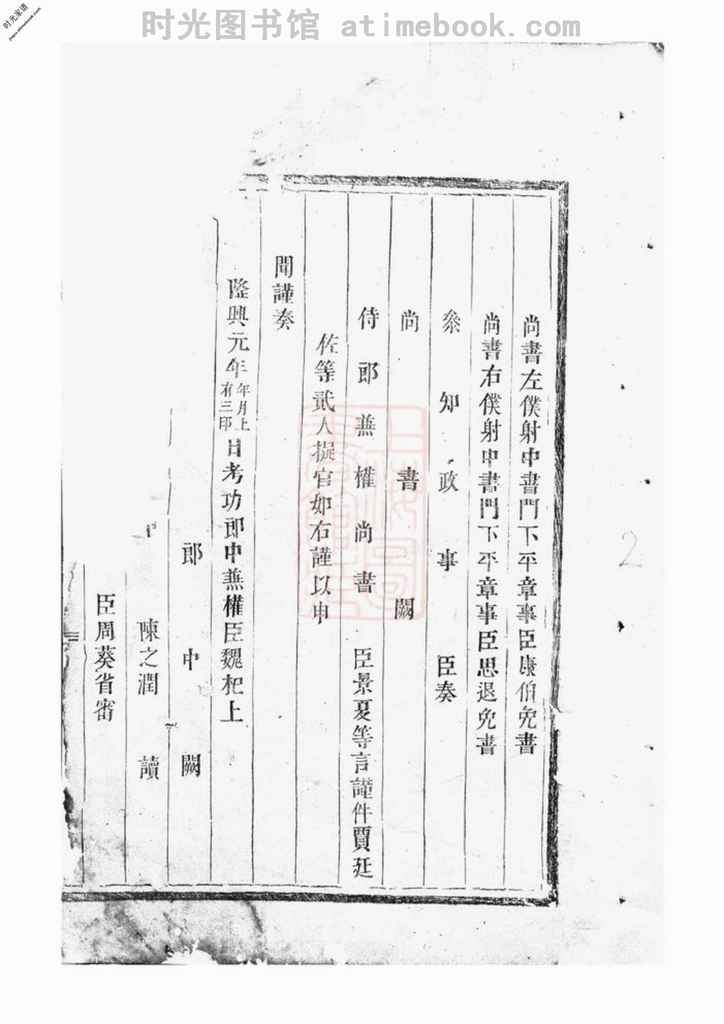 时光图书馆 atimebook.com
时光家谱
尚書左僕射中書門下平章事臣康伯免書
尚書右僕射中書門下平章事臣思退免書
叅知政事臣奏
尚書闕
侍郎兼權尚書臣景夏等言謹件賈廷
佐等貳人擬官如右謹以申
聞謹奏
隆興元年年月上有三印日考功郎中兼權臣魏杞上
郎中闕
陳之潤讀
臣周葵省審
2